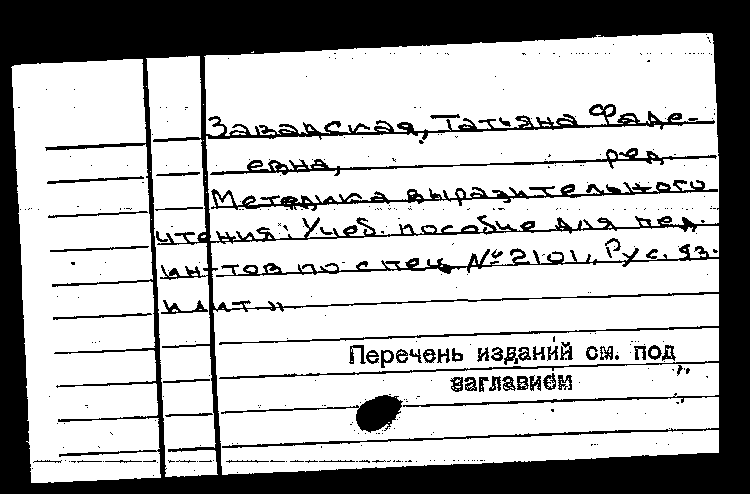 Завадская, Татьяна Фаде-
евна, ред.
Методика выразительного
чтения: Учеб. пособие для пед.
ин-тов по спец. № 2101 „Рус. яз.
и лит."
Перечень изданий см. под
заглавием